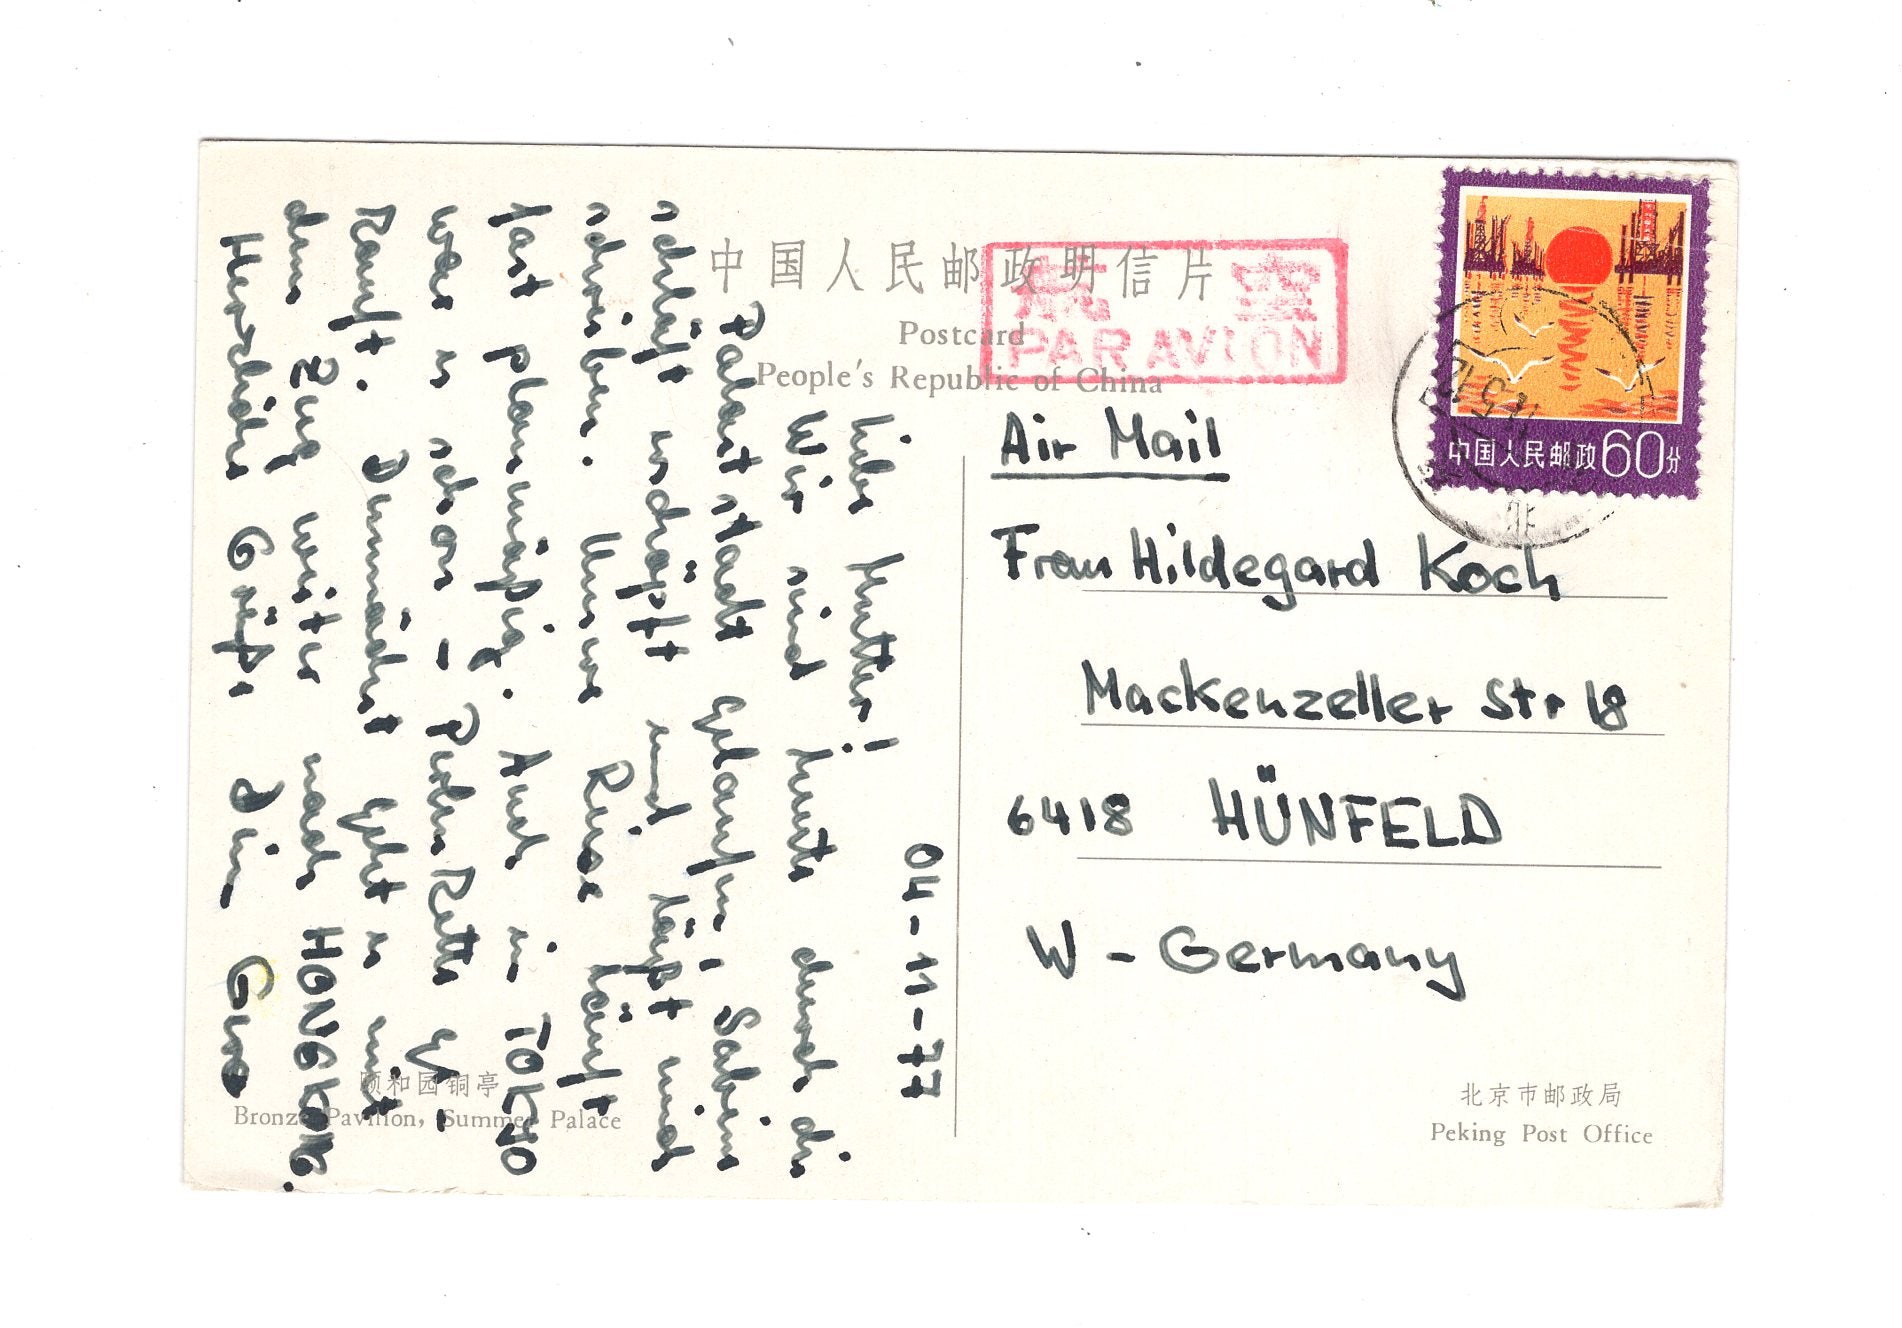 中国人民邮政明信片
Postcard
People's Republic of China
航 空
PAR AVION
中国人民邮政 60分
04-11-77
Liebe Mutter!
Wir sind heute durch die
Palaststadt gelaufen, Sabine
schläft erschöpft und läßt mich
schreiben. Unsere Reise läuft
fast planmäßig. Auch in TOKYO
war es schön – Perlen Kette ge-
Kauft. Demnächst geht es mit
dem Zug weiter nach HONGKONG.
Herzliche Grüße Dein Gero
Air Mail
Frau Hildegard Koch
Mackenzeller Str 18
6418 HÜNFELD
W - Germany
颐和园铜亭
Bronze Pavilion, Summer Palace
北京市邮政局
Peking Post Office